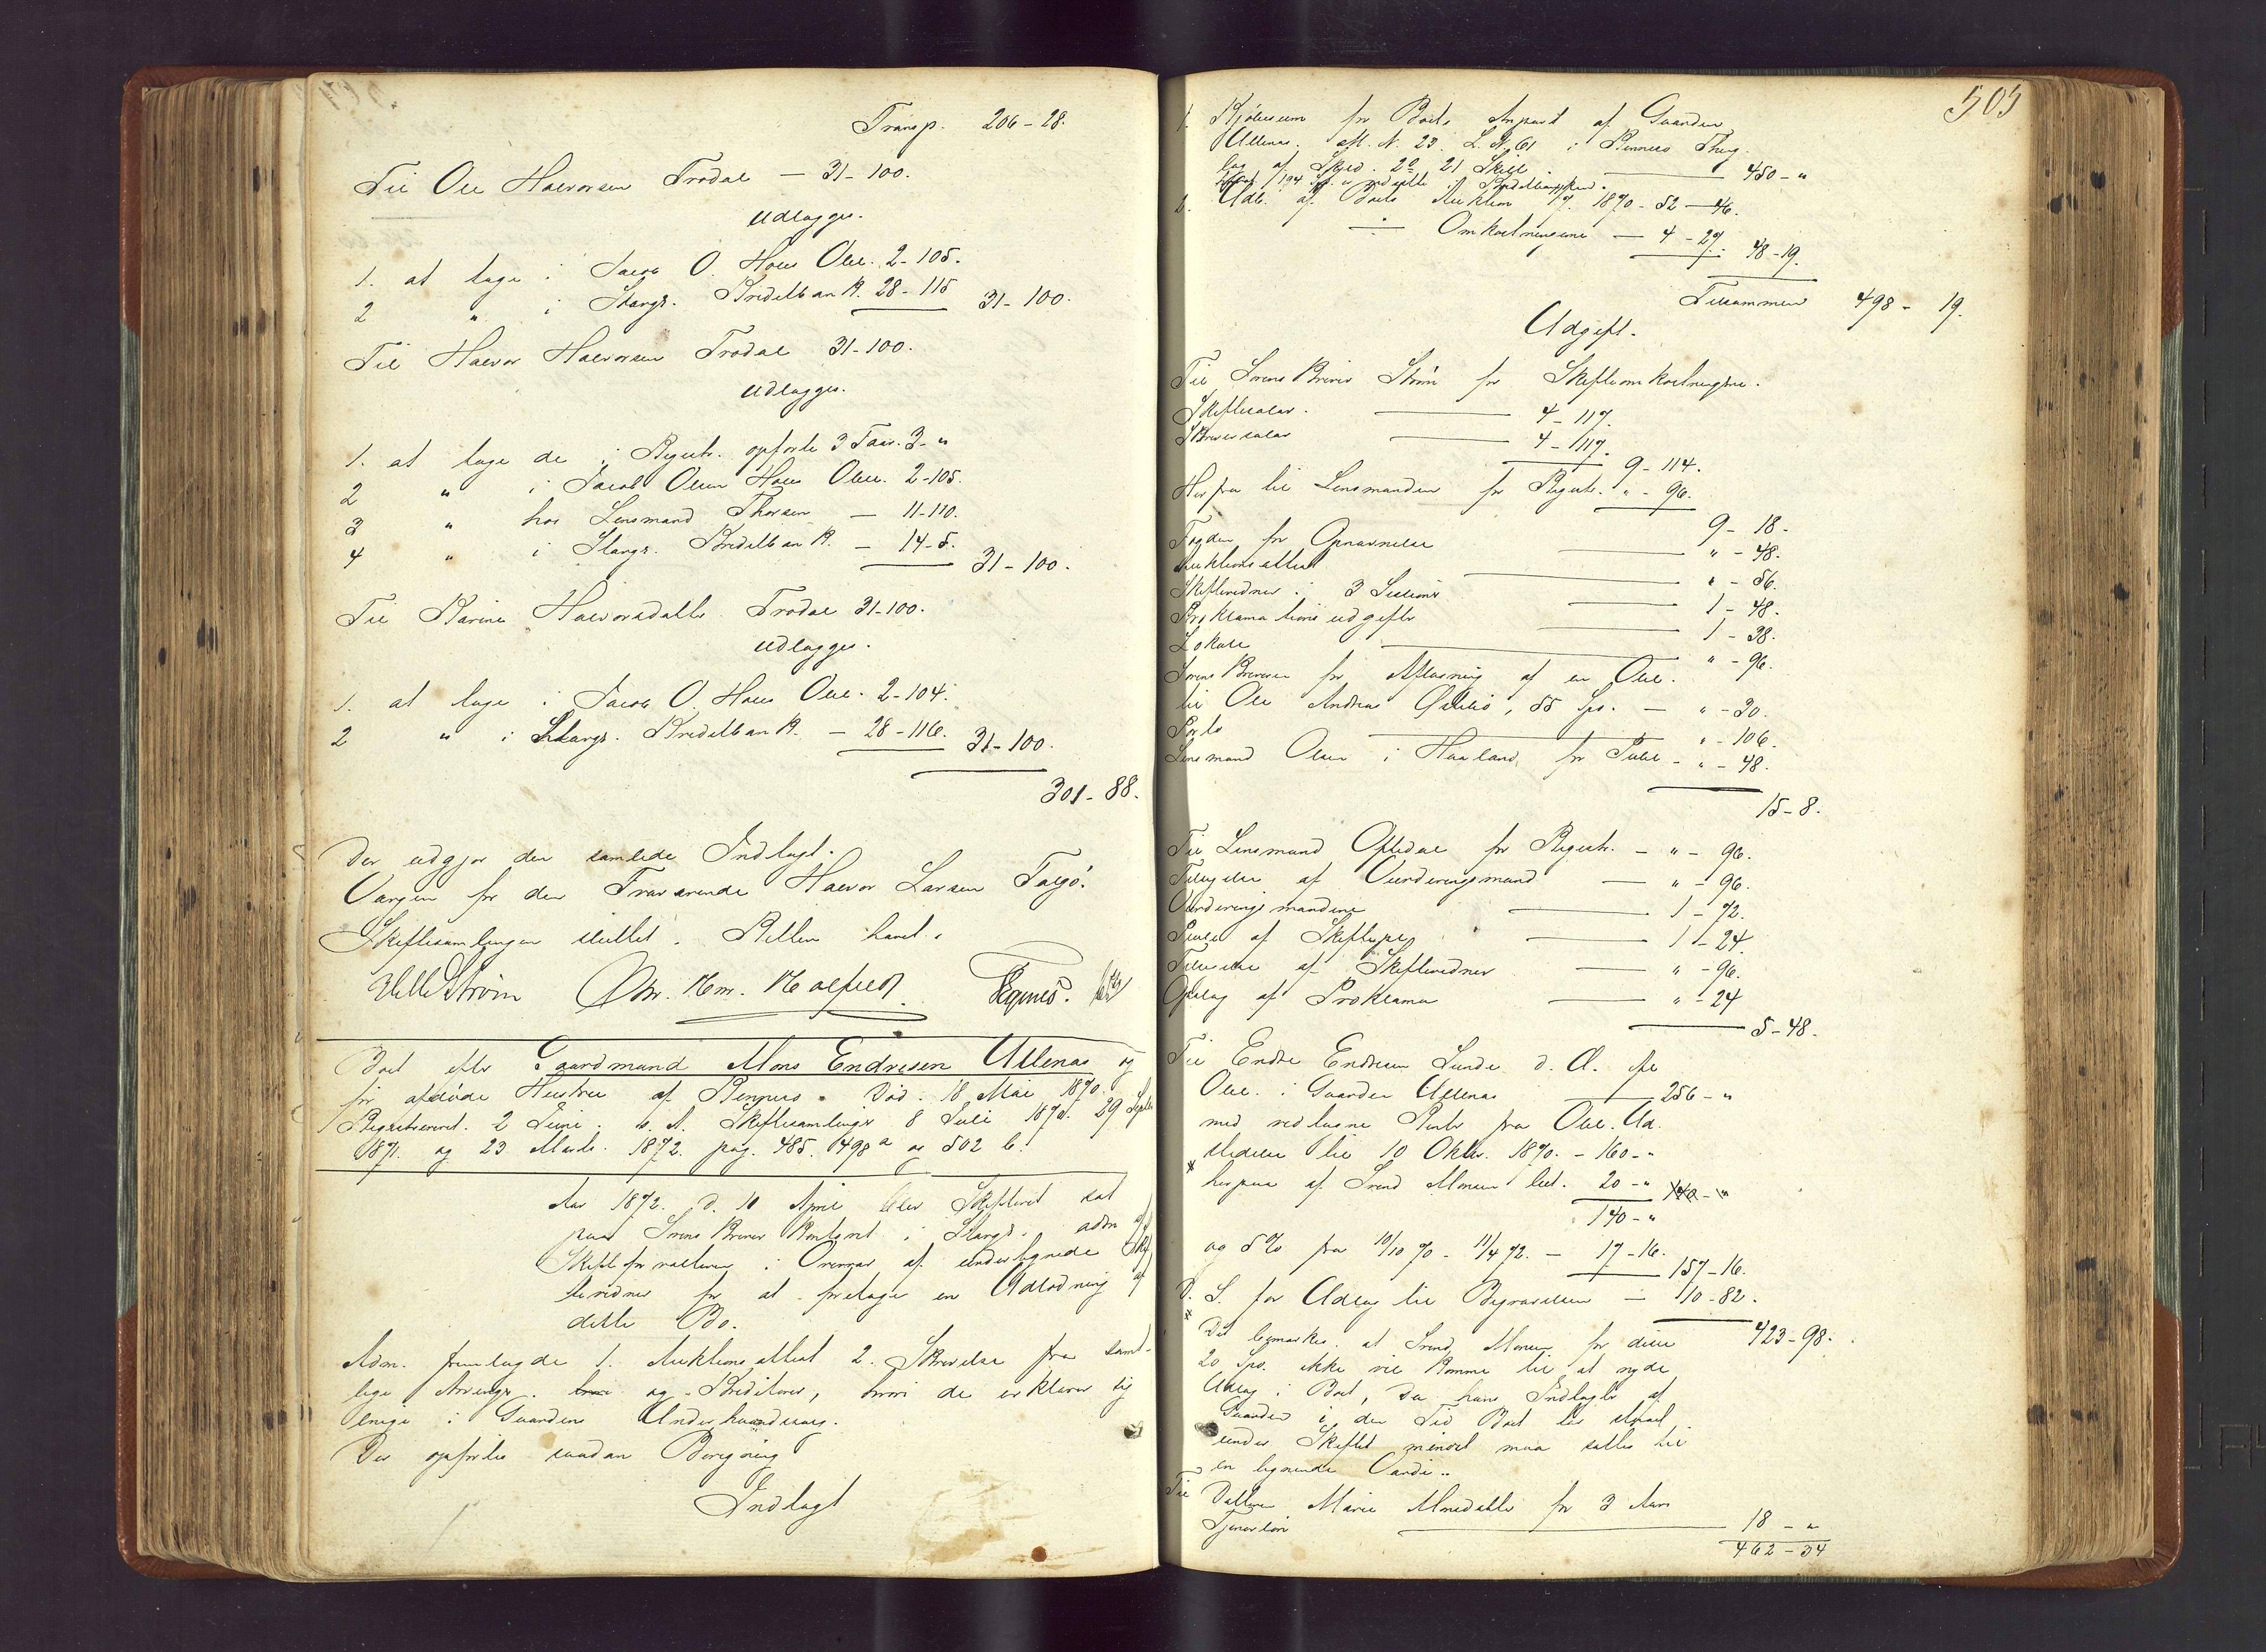 Transp. 206-28.
Til Ole Halvorsen Trodal — 31-100.
Udlagges.
1. at tage i Jacob O. Hovs Obl. 2-105.
2 " i Stavgr. Kreditbank. 28-115 31-100.
Til Halvor Halvorsen Trodal 31-100.
Udlagges.
1. at tage de i Registr. opførte 3 Faar. 3-"
2 " i Jacob Olsen Hovs Obl. 2-105.
3 " hos Lensmand Thorsen — 11-110.
4 " i Stavgr. Kreditbank. — 14-5. 31-100.
Til Karine Halvorsdatter Trodal 31-100.
Udlagges.
1. at tage i Jacob O. Hovs Obl. 2-104.
2 " i Stavgr. Kreditbank. — 28-116. 31-100.
301-88.
Der udgjør den samlede Indtægt.
Værgen for den Fraværende Halvor Larsen Talgø.
Skiftesamlingen sluttet. Retten hævet.
Strøm
Boet efter Gaardmand Mons Endresen Utlenæs og
før afdøde Hustru af Rennesø. Død. 18 Mai 1870.
Registreret. 2 Juni. s. A. Skiftesamlinger 8 Juli 1870. 29 Septbr
1871. og 23 Marts. 1872. pag. 485. 498a og 502 b.
Aar 1872. D. 10 April blev Skifteret sat
paa Sorenskriver Kontoret i Stavgr. adm af
Skifteforvalteren i Overvær af undertegnede Skif
tevidner for at foretage en Udlodning af
dette Bo.
Adm. fremlagde 1. Auktionsattest 2. Skrivelse fra samt-
lige Arvinger og Kreditorer, hvori de erklærer sig
enige i Gaardens Underhaandssalg.
Der opførtes saadan Beregning
Indtægt
505
1. Kjøbesum for Boets Anpart af Gaarden
Utlenæs. M. N. 23. L. N. 61 i Rennesø Thing-
lag af Skyld. 2 21 Skill — 450-"
2. Udb. af Boets Auktion 1870 - 52-46.
÷ Omkostningerne — 4-27. 48-19.
Tilsammen 498-19.
Udgift.
Til Sorenskriver Strøm for Skifteomkostningerne.
Skiftesalær. — 4-117.
Skriversalær — 4-117.
9-114.
Herfra til Lensmanden for Registr. "-96.
9-18.
Fogden for Opnævnelse — "-48.
Auktionsattest — "-56.
Skiftevidner i 3 Sessioner — 1-48.
Proklamationsudgifter — 1-38.
Lokale — "-96.
Sorenskriveren for Aflæsning af en Obl.
til Ole Andreas , 55 Spd. — "-30.
Porto — "-106.
Lensmand Olsen i Haaland, for — "-48.
15-8.
Til Lensmand Oftedal for Registr. — "-96.
Tilsigelse af Vurderingsmænd — "-96.
Vurderingsmændene — 1-72.
af Skiftepr — 1-24
Tilsigelse af Skiftevidner — "-96.
Opslag af Proklama — "-24
5-48.
Til Endre Endresen Lunde d. Æ. ifte
Obl. i Gaarden Utlenæs — 256-"
med vedtagne Rente fra Obl. Ud
stedelse til 10 Oktbr. 1870. - 160-"
* herpaa af Svend Monsen bet. 20-" 140-"
140-"
og 5% fra 10/10 70 - 11/4 72. — 17-16. 157-16.
D. S. for Udlæg til Begravelsen — 10-82.
423-98.
* Det bemærkes, at Svend Monsen for disse
20 Spd. ikke vil komme til at nyde
Udlæg i Boet, da hans Indtægter af
Gaarden i den Tid Boet har staaet
under Skiftet mindst maa sættes til
en lignende Værdi.
Til Datteren Marie Monsdatter for 3 Aars
Tjenerløn — 18-"
462-34